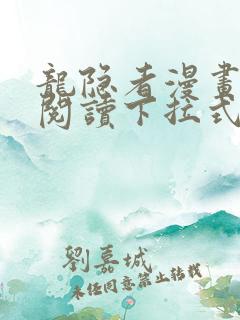 龍隐者漫畫
閱讀下拉式
劉嘉城
未经同意禁止转载